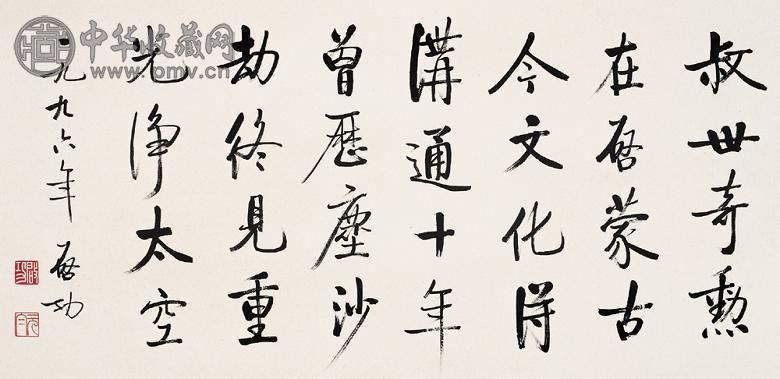 叔世奇勲
在启蒙古
今文化得
溝通十年
曾歷塵沙
劫終見重
光淨太空
一九九六年 启功
中华收藏网